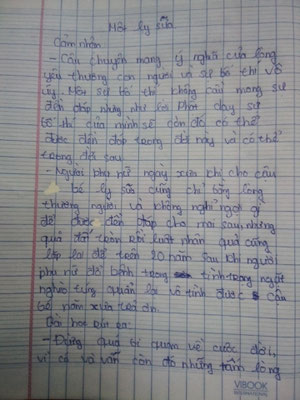 Một ly sữa
Cảm nhận
- Câu chuyện mang ý nghĩa của lòng
yêu thương con người và sự bố thí vô
vụ. Một sự bố thí không cần mong sự
đền đáp nhưng như lời Phật dạy sự
bố thí của mình sẽ còn đó có thể
được đền đáp trong đời này và có thể
trong đời sau.
- Người phụ nữ ngày xưa khi cho cậu
bé ly sữa cũng chỉ bằng lòng
thương người và không nghĩ ngợi gì
để được đền đáp cho mai sau, nhưng
quả đất tròn rồi luật nhân quả cũng
lặp lại để trên 20 năm sau khi người
phụ nữ đó bệnh trong tình trạng ngặt
nghèo từng quẩn lại vô tình được Cậu
bé năm xưa trả ơn.
Bài học rút ra:
- Đừng quá bi quan về cuộc đời,
vì có vô vàn còn đó những tấm lòng
VIBOOK